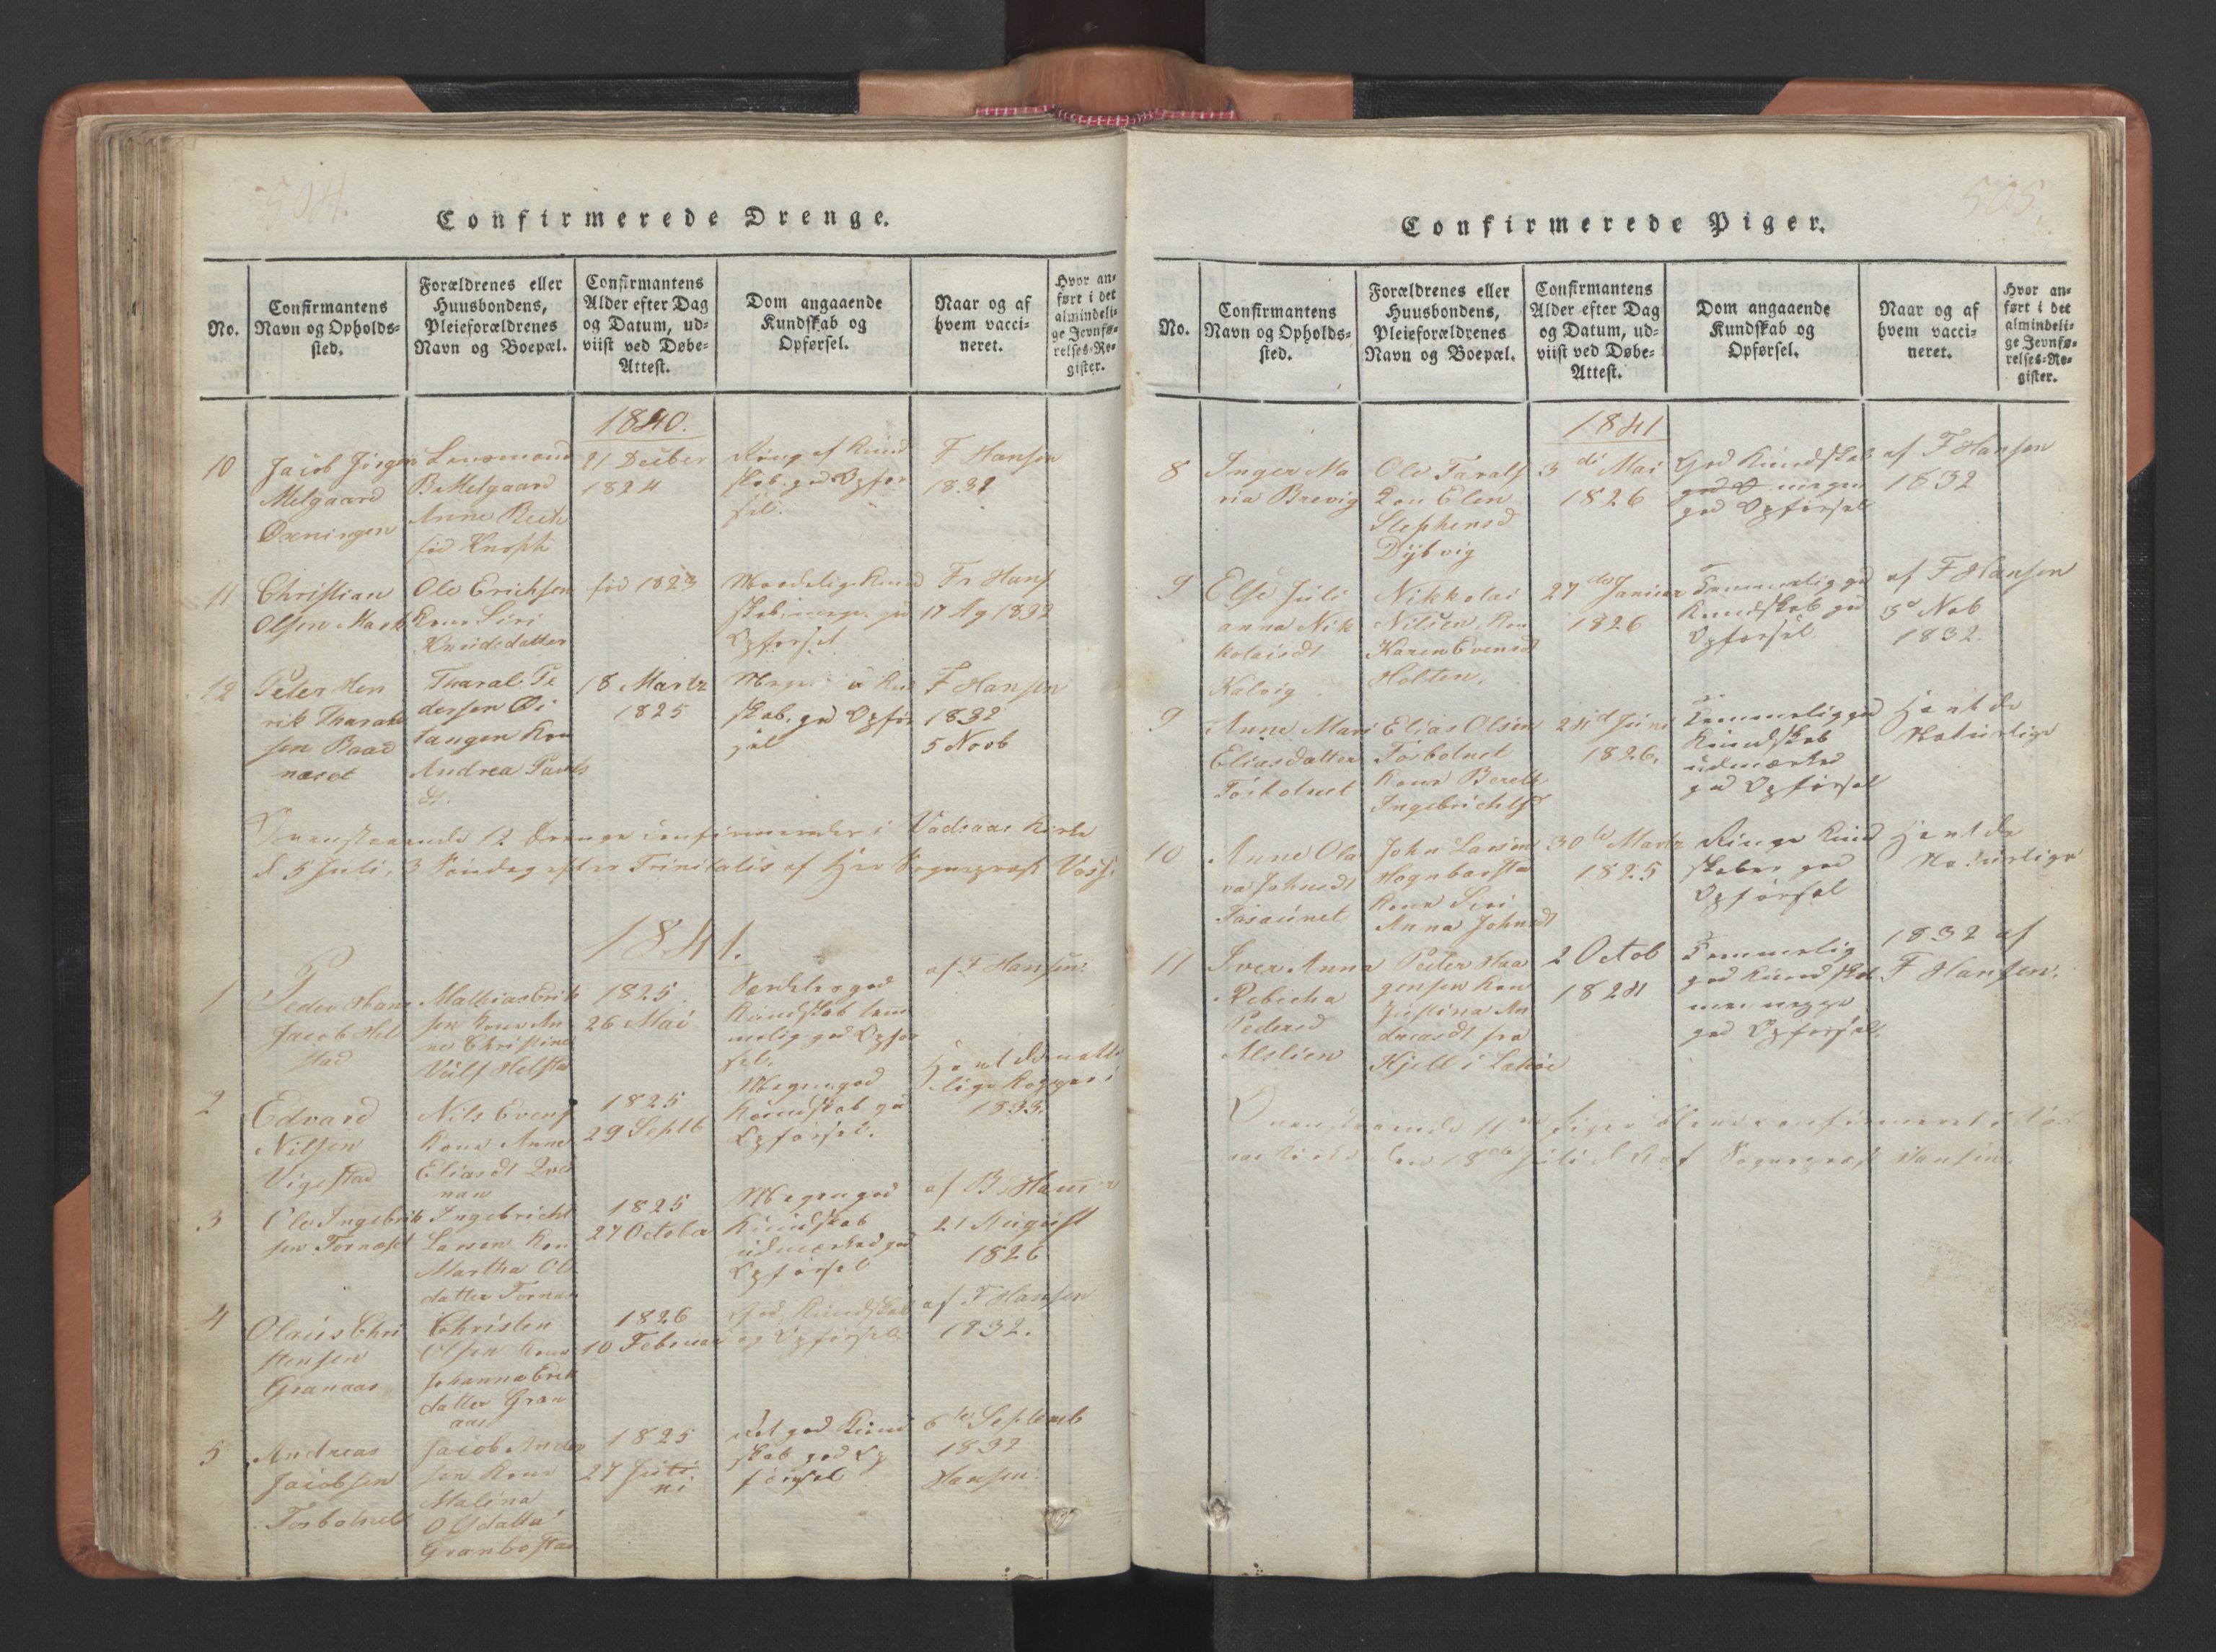 504.
Confirmerede Drenge.
No.
Confirmantens
Navn og Opholds-
sted.
Forældrenes eller
Huusbondens,
Pleieforældrenes
Navn og Boepæl.
Confirmantens
Alder efter Dag
og Datum, ud-
viist ved Døbe-
Attest.
Dom angaaende
Kundskab og
Opførsel.
Naar og af
hvem vacci-
neret.
Hvor an-
ført i det
almindeli-
ge Jevnfø-
relses-Re-
gister.
1840.
10
Jacob Jörgen
Melgaard
Oxningen
Lensmand
B Melgaard
Anne Beck
föd Knoph
21 Decber
1824
Ring af Kund
skab. god Opför
sel.
F Hansen
1832
11
Christian
Olsen Mark
Ole Erichsen
Kone Siri
Knudsdatter
föd 1823
Maadelig Kund
skab. megen god
Opförsel
Fr Hans
17 Ag 1832
12
Peter Hen
rik Tharald
sen Baad
næset
Tharal. Pe
dersen Öi
tangen Kon
Andrea Pauls
dt.
18 Martz
1825
Megen Kund
skab. god Opför
sel
F Hansen
1832
5 Novb
Ovenstaaende 12 Drenge confirmerede i Vadsaas Kirke
d 5 Juli, 3 Söndag efter Trinitatis af Hr Sognepræst Voss.
1841.
1
Peder Hans
Jacob Hel
stad
Mathias Erik
sen Kone An
ne Christine
Vülf Helstad
1825
26 Mai
god
Kundskab tem
melig god Opför
sel.
af F Hansen.
2
Edvard
Nilsen
Vigestad
Nils Evens
Kone Anne
Eliasdt
1825
29 Septb
Megen god
Kundskab god
Opförsel.
Havt de natur
lige Kopper i
1833.
3
Ole Ingebrik
sen Tornæset
Ingebricht
Larsen Kon
Martha Ol
datter Tornæs
1825
27 October
Megen god
Kundskab
udmærked god
Opförsel
af B. Hans
21 August
1826
4
Olaus Chri
stensen
Granaas
Christen
Olsen Kone
Johanna Erik
datter Gran
aas
1826
10 Februar
God Kundskab
og Opförsel
af F Hansen
1832.
5
Andreas
Jacobsen
Tosbotnet
Jacob Ander
sen Kone
Malena
Olsdatter
Granbostad
1825
27 Juli
ni
Ret god Kund
skab god Op
førsel
6te Septemb
1832
Hansen.
505.
Confirmerede Piger.
No.
Confirmantens
Navn og Opholds-
sted.
Forældrenes eller
Huusbondens,
Pleieforældrenes
Navn og Boepæl.
Confirmantens
Alder efter Dag
og Datum, ud-
viist ved Døbe-
Attest.
Dom angaaende
Kundskab og
Opførsel.
Naar og af
hvem vacci-
neret.
Hvor an-
ført i det
almindeli-
ge Jevnfø-
relses-Re-
gister.
1841
8
Inger Ma
ria Brevig
Ole Taralf
Kon Elen
Stephensd
Dybvig
3 di Mai
1826
God Kundskab
god O megen
god Opförsel
af F Hansen
1832
9
Else Juli
anna Nik
kolaisdt
Kalvig
Nikkolai
Nilsen, Kon
Karen Evensd
Holten,
27 de Januar
1826
Temmelig god
Kundskab god
Opförsel
af F Hansen
5d Nob
1832.
9
Anne Mari
Eliasdatter
Tosbotnet
Elias Olsen
Tosbotnet
Kone Bereth
Ingebrichtsd
24d Juni
1826.
Temmelig god
Kundskab
udmærket
god Opförsel
Havt de
Naturlige
10
Anne Ola
va Johnsdt
Tosaünet
John Larsen
Hognbarstad
Kone Siri
Anna Johnsdt
30te Martz
1825
Ringe Kund
skaber god
Opförsel
Havt de
Naturlige
11
Iver Anna
Rebecka
Pedersd
Alslien
Peder Haa
gensen Kon
Justina An
dreasdt fra
Kjell i Lekøe
2 Octob
1824
Temmelig
god Kundskab
men megen
god Opförsel.
1832 af
F Hansen.
Ovenstaaende 11 Piger bleve confirmeret i Vad
saas Kirke den 18de Juli d. A. af Sognepræst Hansen.